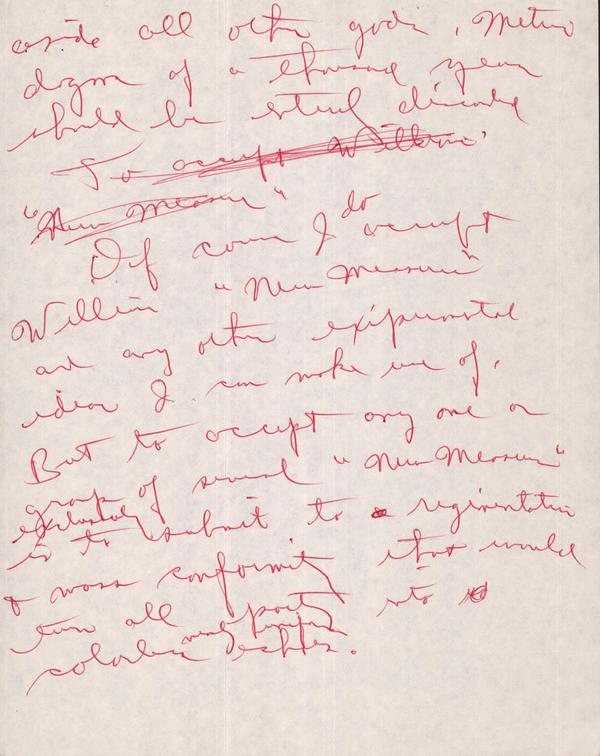 aside all other gods. Metric
dogma of a thousand years
should be
To accept Williams'
"New Measure"
Of course I do accept
Williams "New Measure"
and any other experimental
idea I can make use of.
But to accept any one or
group of several "New Measures"
exclusively
is to submit to a regimentation
& mass conformity that would
turn all poets into
colorless echoes.